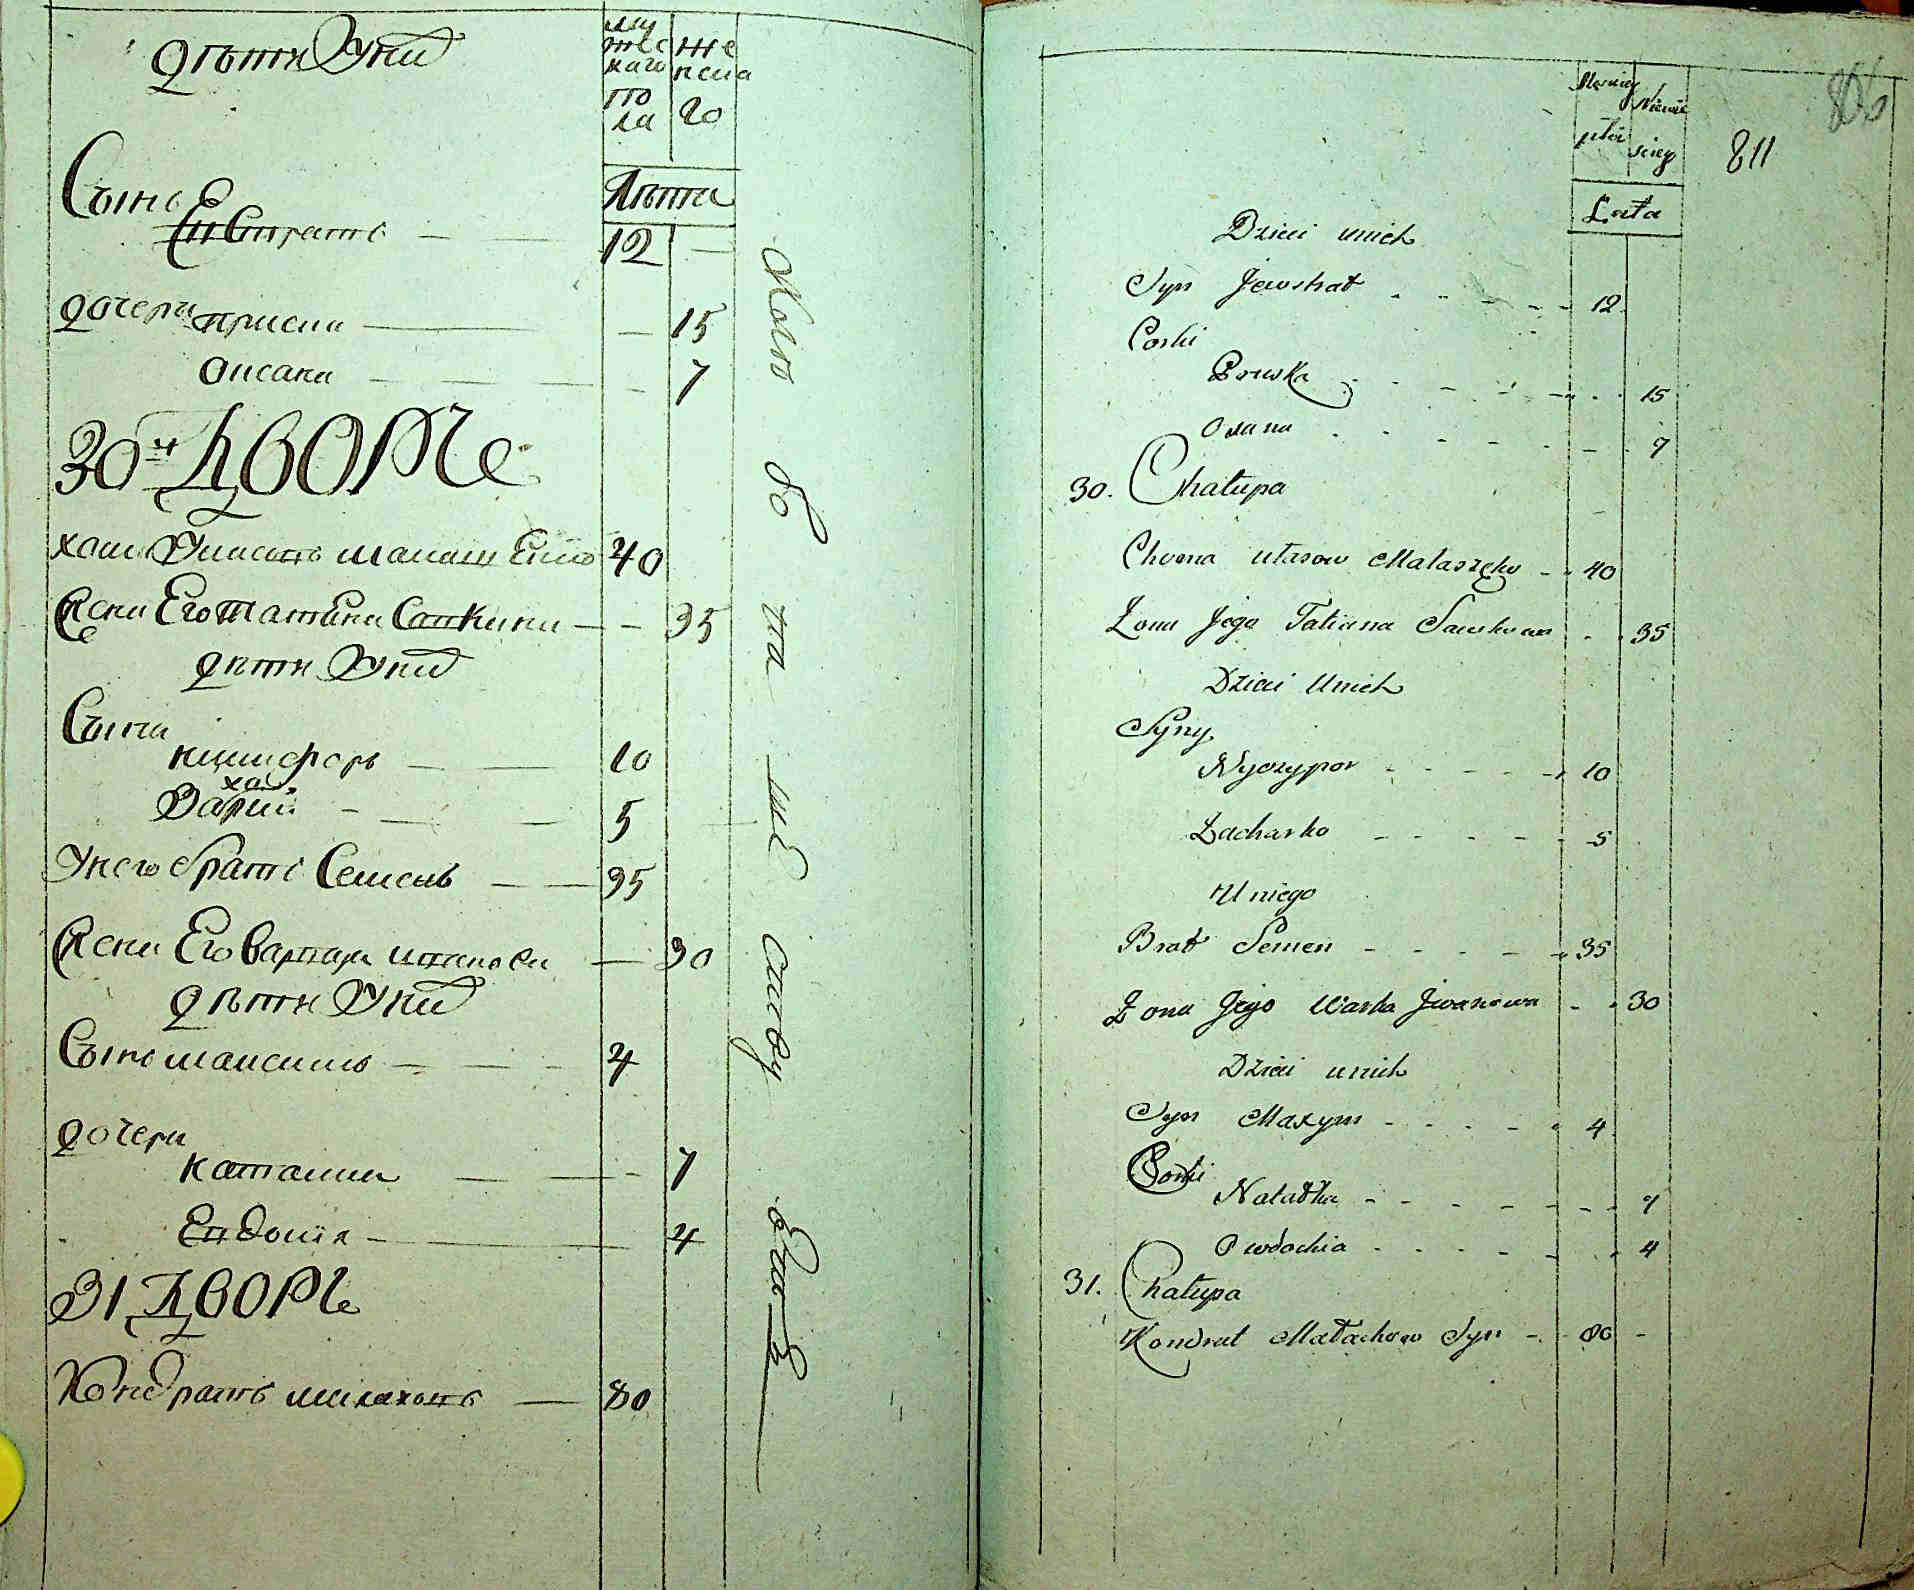 дѣти Унихъ
му
жес
каго
по
ла
же
нска
го
Лѣта
Сынъ
Евстратъ — — 12 —
дочери
Приска — — 15
Оксана — — — 7
30й ДВОРЪ
Хома Уласовъ Малаш Енко 40
Жена Его Татіана Савкина — — 35
дѣти Унихъ
Сыны
Ничифоръ — — 10
хар
Захарій — — — 5
Унего братъ Семенъ — — 35
Жена Его Варвара Иванова — 30
дѣти Унихъ
Сынъ Максимъ — — — 4
дочери
Наталия — — — 7
Евдокія — — 4
31 ДВОРЪ
Кондратъ Малаховъ — 80
806
811
Męskiey
płci
Lata
Dzieci unich
Syn Jewstrat 12
Corki
Pruska 15
Oxana 7
30. Chałupa
Choma Ułasow Małaszęko 40
Żona Jego Tatiana Sawkowa 35
Dzieci Unich
Syny
Nyczypor 10
Zacharko 5
U niego
Brat Semen 35
Żona Jego Warka Jwanowa 30
Dzieci unich
Syn Maxym 4
Corki
Natałka 7
Owdochia 4
31. Chałupa
Kondrat Małachow Syn 80 -